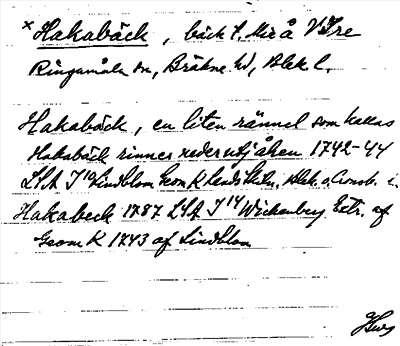 × Hakabäck, bäck t. Mieå V Ire
Ringamåla sn, Bräkne hd, Blek l.
Hakabäck, en liten rännel som kallas
Hakabäck rinner neder utj åhen 1742-44
LSA J10 Lindblom Geom K Landsk Blek. o.
Hakabeck 1787 LSA J14 Wickenberg Extr. af
Geom K 1743 af Lindblom